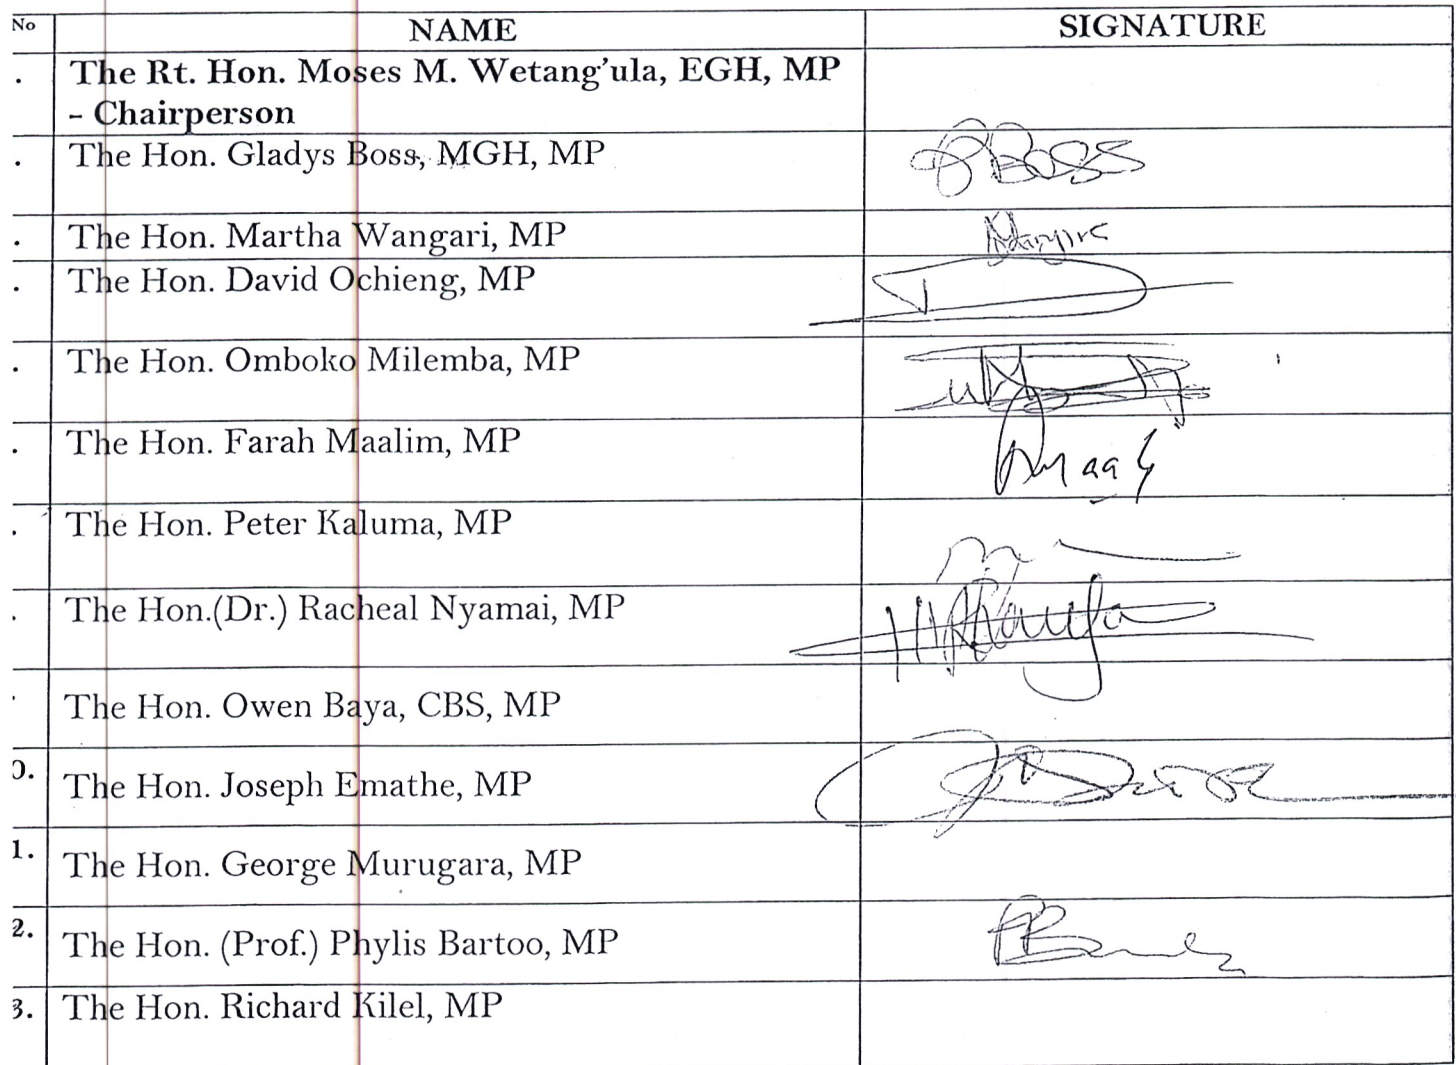 No NAME SIGNATURE
. The Rt. Hon. Moses M. Wetang'ula, EGH, MP
- Chairperson
. The Hon. Gladys Boss, MGH, MP Boss
. The Hon. Martha Wangari, MP
. The Hon. David Ochieng, MP
. The Hon. Omboko Milemba, MP
. The Hon. Farah Maalim, MP
. The Hon. Peter Kaluma, MP
. The Hon.(Dr.) Racheal Nyamai, MP
. The Hon. Owen Baya, CBS, MP
0. The Hon. Joseph Emathe, MP
1. The Hon. George Murugara, MP
2. The Hon. (Prof.) Phylis Bartoo, MP
3. The Hon. Richard Kilel, MP